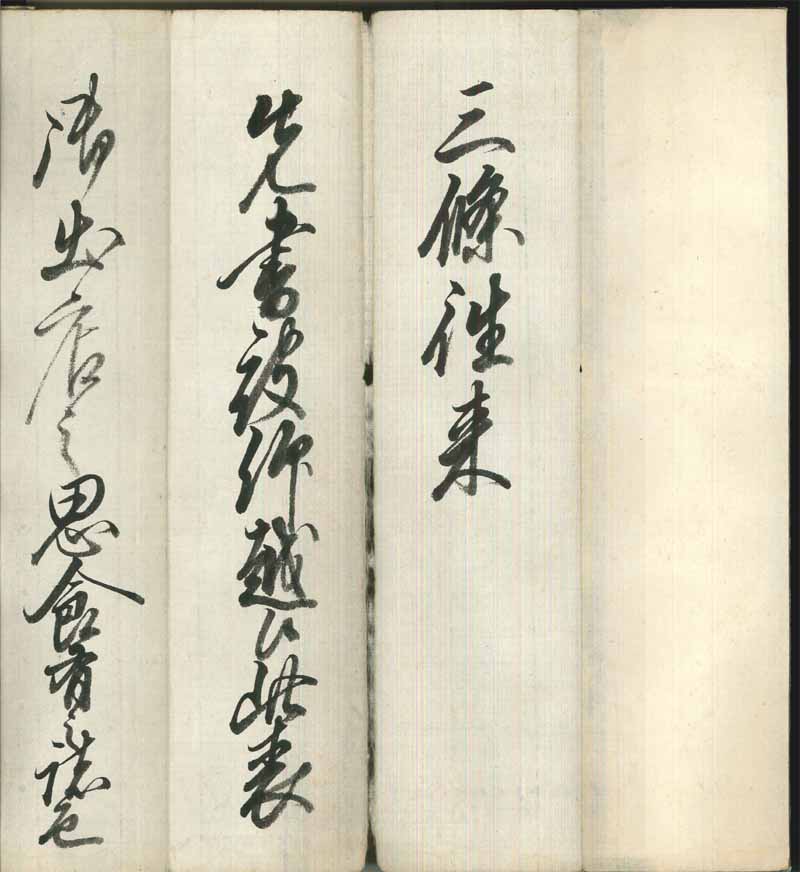 三條往来
先書被仰越候此表
御出店之思食有之諸色